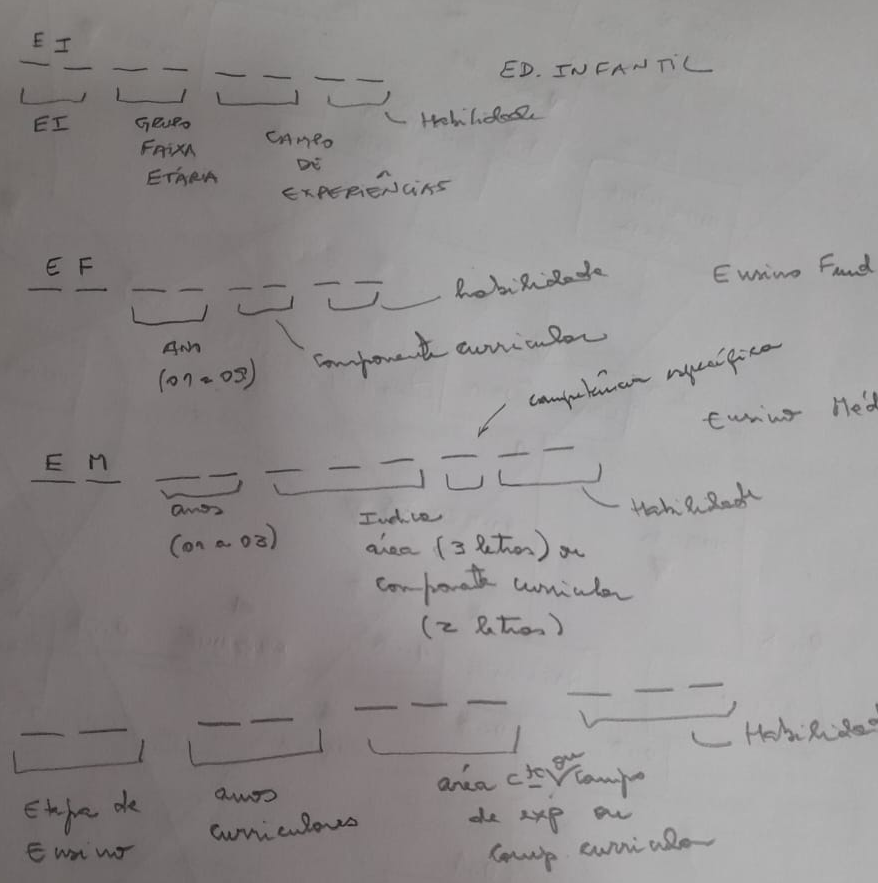 E I
ED. INFANTIL
EI
GRUPO
FAIXA
ETÁRIA
CAMPO
DE
EXPERIÊNCIAS
Habilidade
E F
habilidade
Ensino Fund
Ano
(01 a 09)
componente curricular
competência específica
Ensino Méd
E M
anos
(01 a 03)
Indica
área (3 letras) ou
componente curricular
(2 letras)
Habilidade
Etapa de
Ensino
anos
curriculares
área ou campo
de exp ou
comp. curricular
Habilidad